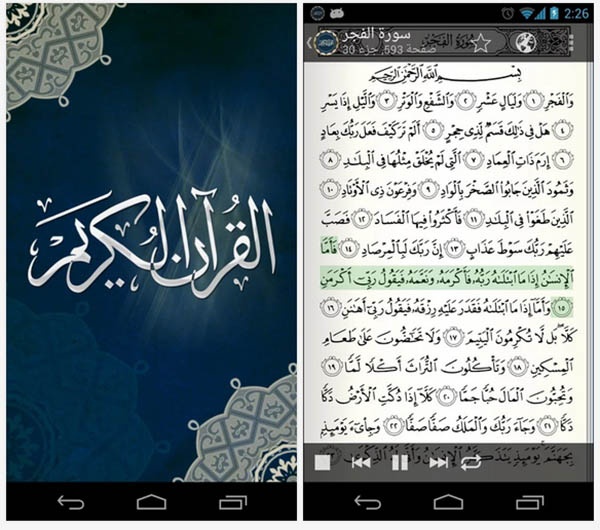 القرآن الكريم
2:26
سورة الفجر
صفحة 593, جزء 30
بِسْمِ اللَّهِ الرَّحْمَٰنِ الرَّحِيمِ
وَالْفَجْرِ ١ وَلَيَالٍ عَشْرٍ ٢ وَالشَّفْعِ وَالْوَتْرِ ٣ وَاللَّيْلِ إِذَا يَسْرِ
٤ هَلْ فِي ذَٰلِكَ قَسَمٌ لِّذِي حِجْرٍ ٥ أَلَمْ تَرَ كَيْفَ فَعَلَ رَبُّكَ بِعَادٍ
٦ إِرَمَ ذَاتِ الْعِمَادِ ٧ الَّتِي لَمْ يُخْلَقْ مِثْلُهَا فِي الْبِلَادِ ٨
وَثَمُودَ الَّذِينَ جَابُوا الصَّخْرَ بِالْوَادِ ٩ وَفِرْعَوْنَ ذِي الْأَوْتَادِ ١٠
الَّذِينَ طَغَوْا فِي الْبِلَادِ ١١ فَأَكْثَرُوا فِيهَا الْفَسَادَ ١٢ فَصَبَّ
عَلَيْهِمْ رَبُّكَ سَوْطَ عَذَابٍ ١٣ إِنَّ رَبَّكَ لَبِالْمِرْصَادِ ١٤ فَأَمَّا
الْإِنسَانُ إِذَا مَا ابْتَلَاهُ رَبُّهُ فَأَكْرَمَهُ وَنَعَّمَهُ فَيَقُولُ رَبِّي أَكْرَمَنِ
١٥ وَأَمَّا إِذَا مَا ابْتَلَاهُ فَقَدَرَ عَلَيْهِ رِزْقَهُ فَيَقُولُ رَبِّي أَهَانَنِ ١٦
كَلَّا بَل لَّا تُكْرِمُونَ الْيَتِيمَ ١٧ وَلَا تَحَاضُّونَ عَلَىٰ طَعَامِ
الْمِسْكِينِ ١٨ وَتَأْكُلُونَ التُّرَاثَ أَكْلًا لَّمًّا ١٩
وَتُحِبُّونَ الْمَالَ حُبًّا جَمًّا ٢٠ كَلَّا إِذَا دُكَّتِ الْأَرْضُ دَكًّا
دَكًّا ٢١ وَجَاءَ رَبُّكَ وَالْمَلَكُ صَفًّا صَفًّا ٢٢ وَجِيءَ يَوْمَئِذٍ
بِجَهَنَّمَ يَوْمَئِذٍ يَتَذَكَّرُ الْإِنسَانُ وَأَنَّىٰ لَهُ الذِّكْرَىٰ